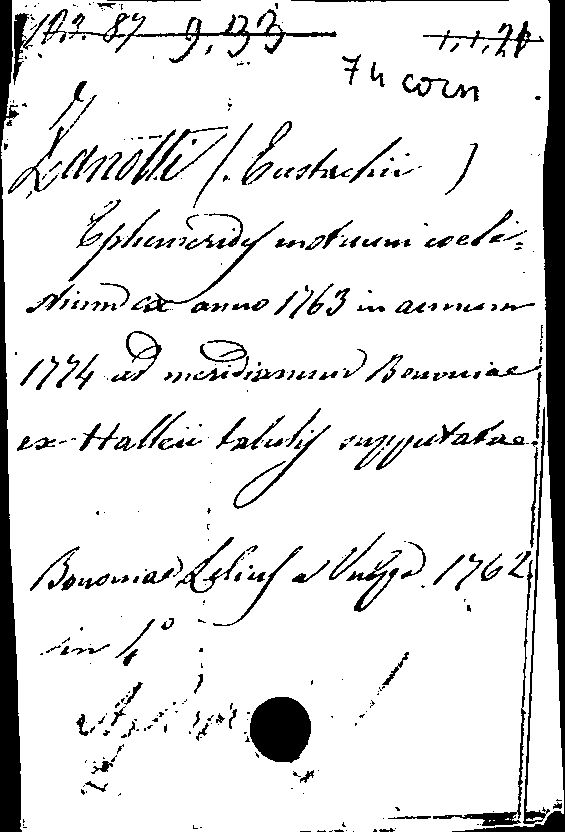 10.2.87 9.133 1.1.21
74 corn
Zanotti (. Eustachii )
Ephemerides motuum coele-
stium ex anno 1763 in annum
1774 ad meridianum Bononiae
ex Halleii tabulis supputatae
Bononiae Lelius a Vulpe 1762
in 4°